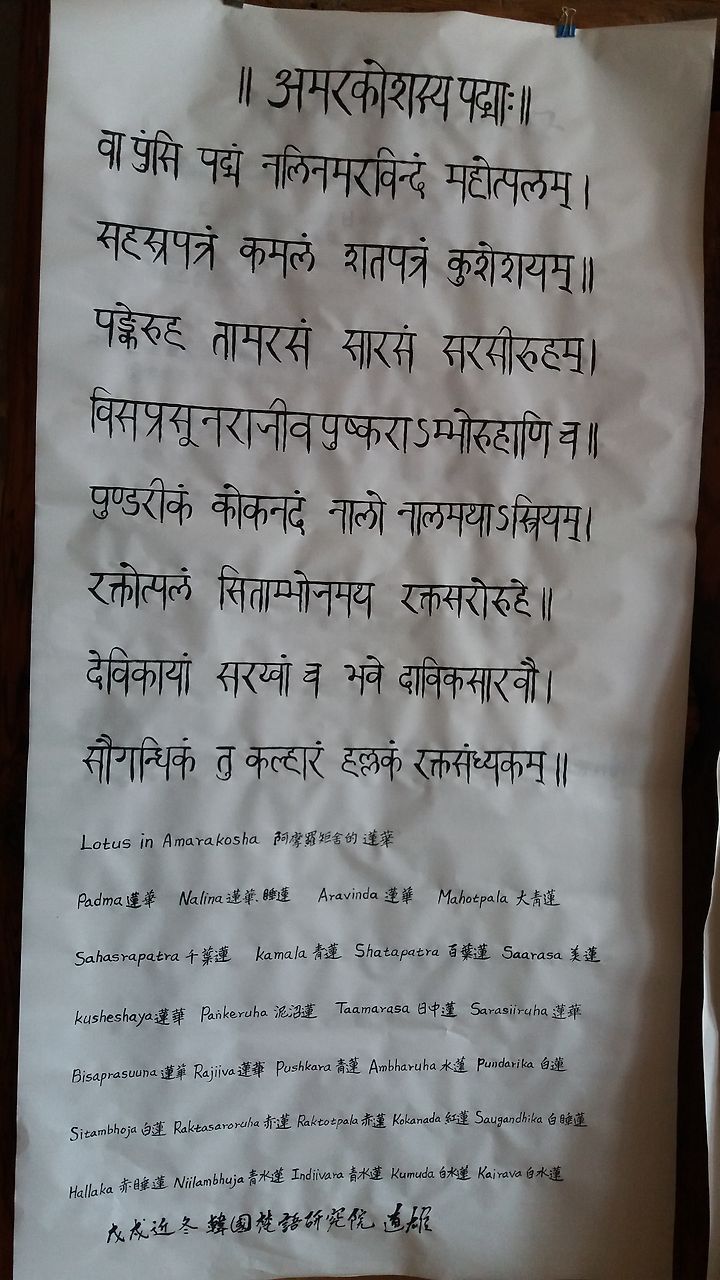 ॥ अमरकोशस्य पद्माः॥
वा पुंसि पद्मं नलिनमरविन्दं महोत्पलम्।
सहस्रपत्रं कमलं शतपत्रं कुशेशयम्॥
पङ्केरुह तामरसं सारसं सरसीरुहम्।
विसप्रसूनराजीवपुष्कराऽम्भोरुहाणि च॥
पुण्डरीकं कोकनदं नालो नालमथाऽस्त्रियम्।
रक्तोत्पलं सिताम्भोजमथ रक्तसरोरुहे॥
देविकायां सरय्वां च भवे दाविकसारवौ।
सौगन्धिकं तु कल्हारं हल्लकं रक्तसंध्यकम्॥
Lotus in Amarakosha 阿摩羅矩舍的 蓮華
Padma 蓮華 Nalina 蓮華、睡蓮 Aravinda 蓮華 Mahotpala 大青蓮
Sahasrapatra 千葉蓮 kamala 青蓮 Shatapatra 百葉蓮 Saarasa 美蓮
kusheshaya 蓮華 Paṅkeruha 泥沼蓮 Taamarasa 日中蓮 Sarasiiruha 蓮華
Bisaprasuuna 蓮華 Rajiiva 蓮華 Pushkara 青蓮 Ambharuha 水蓮 Pundarika 白蓮
Sitambhoja 白蓮 Raktasaroruha 赤蓮 Raktotpala 赤蓮 Kokanada 紅蓮 Saugandhika 白睡蓮
Hallaka 赤睡蓮 Niilambhuja 青水蓮 Indiivara 青水蓮 Kumuda 白水蓮 Kairava 白水蓮
戊戌近冬 韓國梵語研究院 道雄